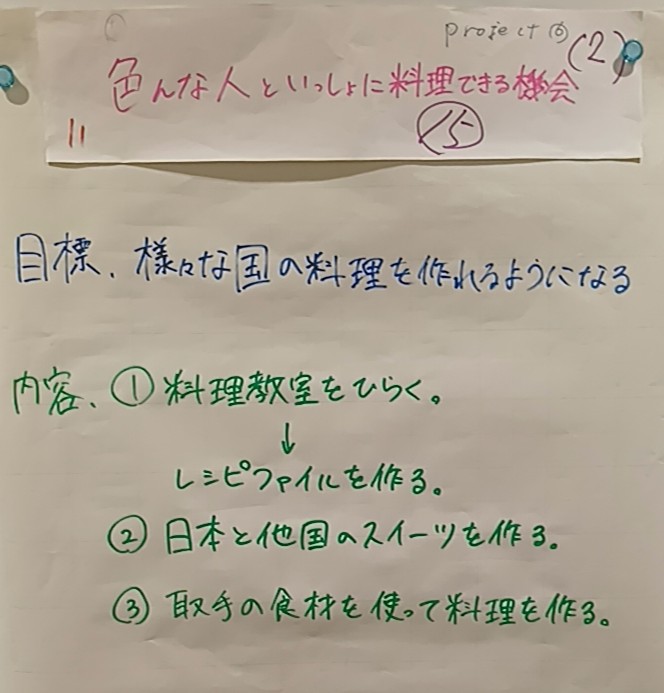 project ⑥ (2)
色んな人といっしょに料理できる機会
11
⑮
目標、様々な国の料理を作れるようになる
内容、①料理教室をひらく。
↓
レシピファイルを作る。
②日本と他国のスイーツを作る。
③取手の食材を使って料理を作る。